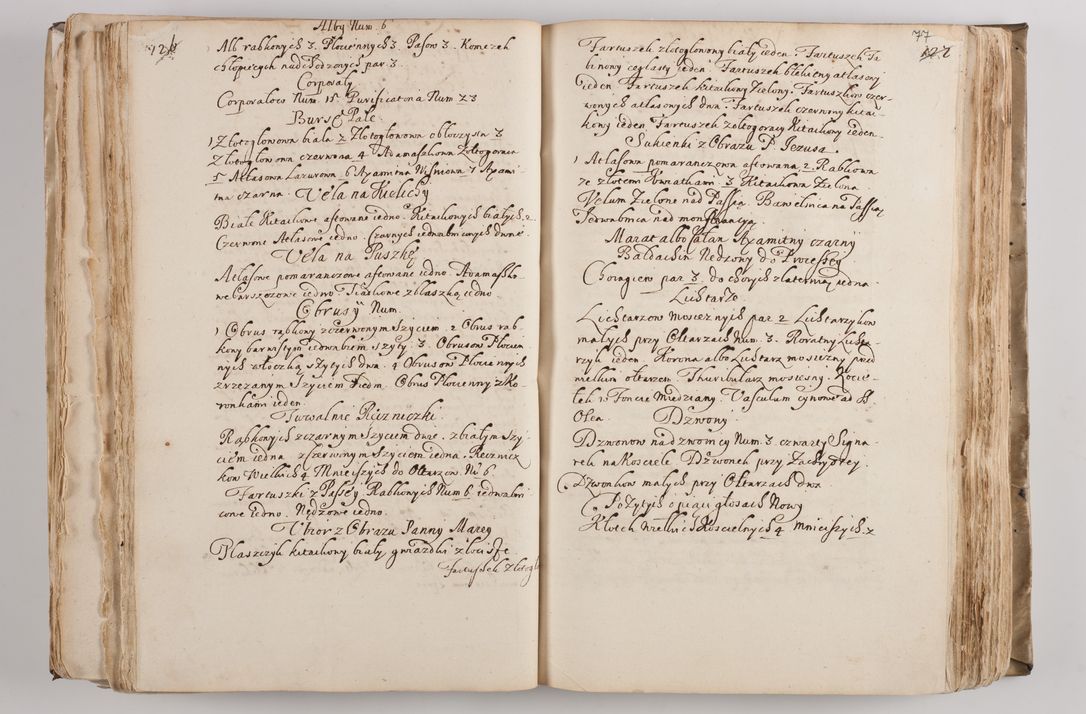 Alby Num. 6
Alb rąbkowych 3. Płociennych 3. Pasow 3. Komezek
chłopięcych nadchodzonych par 3.
Corporały
Corporałow Num. 15. Purificatoria Num 23
Bursę Palę
1 Złotogłowowa biała 2 Złotogłowowa obłoczysta 3
Złotogłowowa czerwona 4 Adamaszkowa Zołtogorąca
5 Atłasowa Lazurowa 6 Axamitna Wisniowa 7 Axami
tna czarna. Vela na Kielichy
Białe Kitaikowe aftowane iedno. Kitaikowych białych 2.
Czerwone Atłasowe iedno. Czarnych iedwabnicowych dwoie.
Vela na Puszkę
Atłasowe pomaranczowe aftowane iedno. Adamaszko
we iedno. zblaszką iedno
Obrusÿ Num.
1 Obrus rąbkowy zczerwonym szyciem. 2 Obrus rąb
kowy barwistym iedwabiem szyty 3. Obrusow Płocien
nych włoczką szytych dwa. 4 Obrusow Płociennych
zrzezanym Szyciem siedm. Obrus Płocienny zKo
ronkami ieden.
Tuwalnie Ręczniczki
Rąbkowych zczarnym szyciem dwie. zbiałym szy
ciem iedna zczerwonym szyciem iedna. Ręcznicz
kow Wielkich 4 Mnieiszych do Ołtarzow. Nu 6
Fartuszki z Passÿ Rąbkowych Num 6 iedwabni
cowe iedno. Nędzowe iedno.
Ubior z Obrazu Panny Mariey
Płaszczyk kitaikowy biały gwiazdki złociste
Fartuszek złotogło
77
122
Fartuszek złotogłowowy biały ieden. Fartuszek Ta
binowy ceglasty ieden. Fartuszek błękitny atlasowy
ieden. Fartuszek kitaikowy Zielony. Fartuszkow czer
wonych atlasowych dwa. Fartuszek czerwony kitai
kowy ieden Fartuszek zołtogorący Kitaikowy ieden.
Sukienki z Obrazu P. Jezusa.
1 Atłasowa pomaranczowa aftowana 2. Rąbkowa
ze złotem kwiatkami 3 Kitaikowa Zielona
Velum Zielone nad Passyą. Bawełnica na Passyą
Jedwabnica nad monstrancyą
Marat albo całun Axamitny czarnÿ
Baldachin Nędzowy do Processyey
Chorągiew par 3. do chorych zlaternią iedna.
Lichtarze
Lichtarzow mosieznych par 2 Lichtarzykow
małych przy Ołtarzach Num. 3. Roratny Lichta
rzyk ieden. Korona albo Lichtarz mosiezny przed
wielkim ołtarzem Thuribularz mosiezny. Kocie
łek w Foncie Miedziany. Vasculum cynowe ad S.
Olea. Dzwony.
Dzwonow nad zwonicy Num. 3. czwarty Signa
rek na Kosciele Dzwonek przy Zachrystyey
Dzwonkow małych przy Ołtarzach dwa.
Pozytyf o pięci głosach Nowy
Klotek wielkich Koscielnych 4 mnieiszych 2